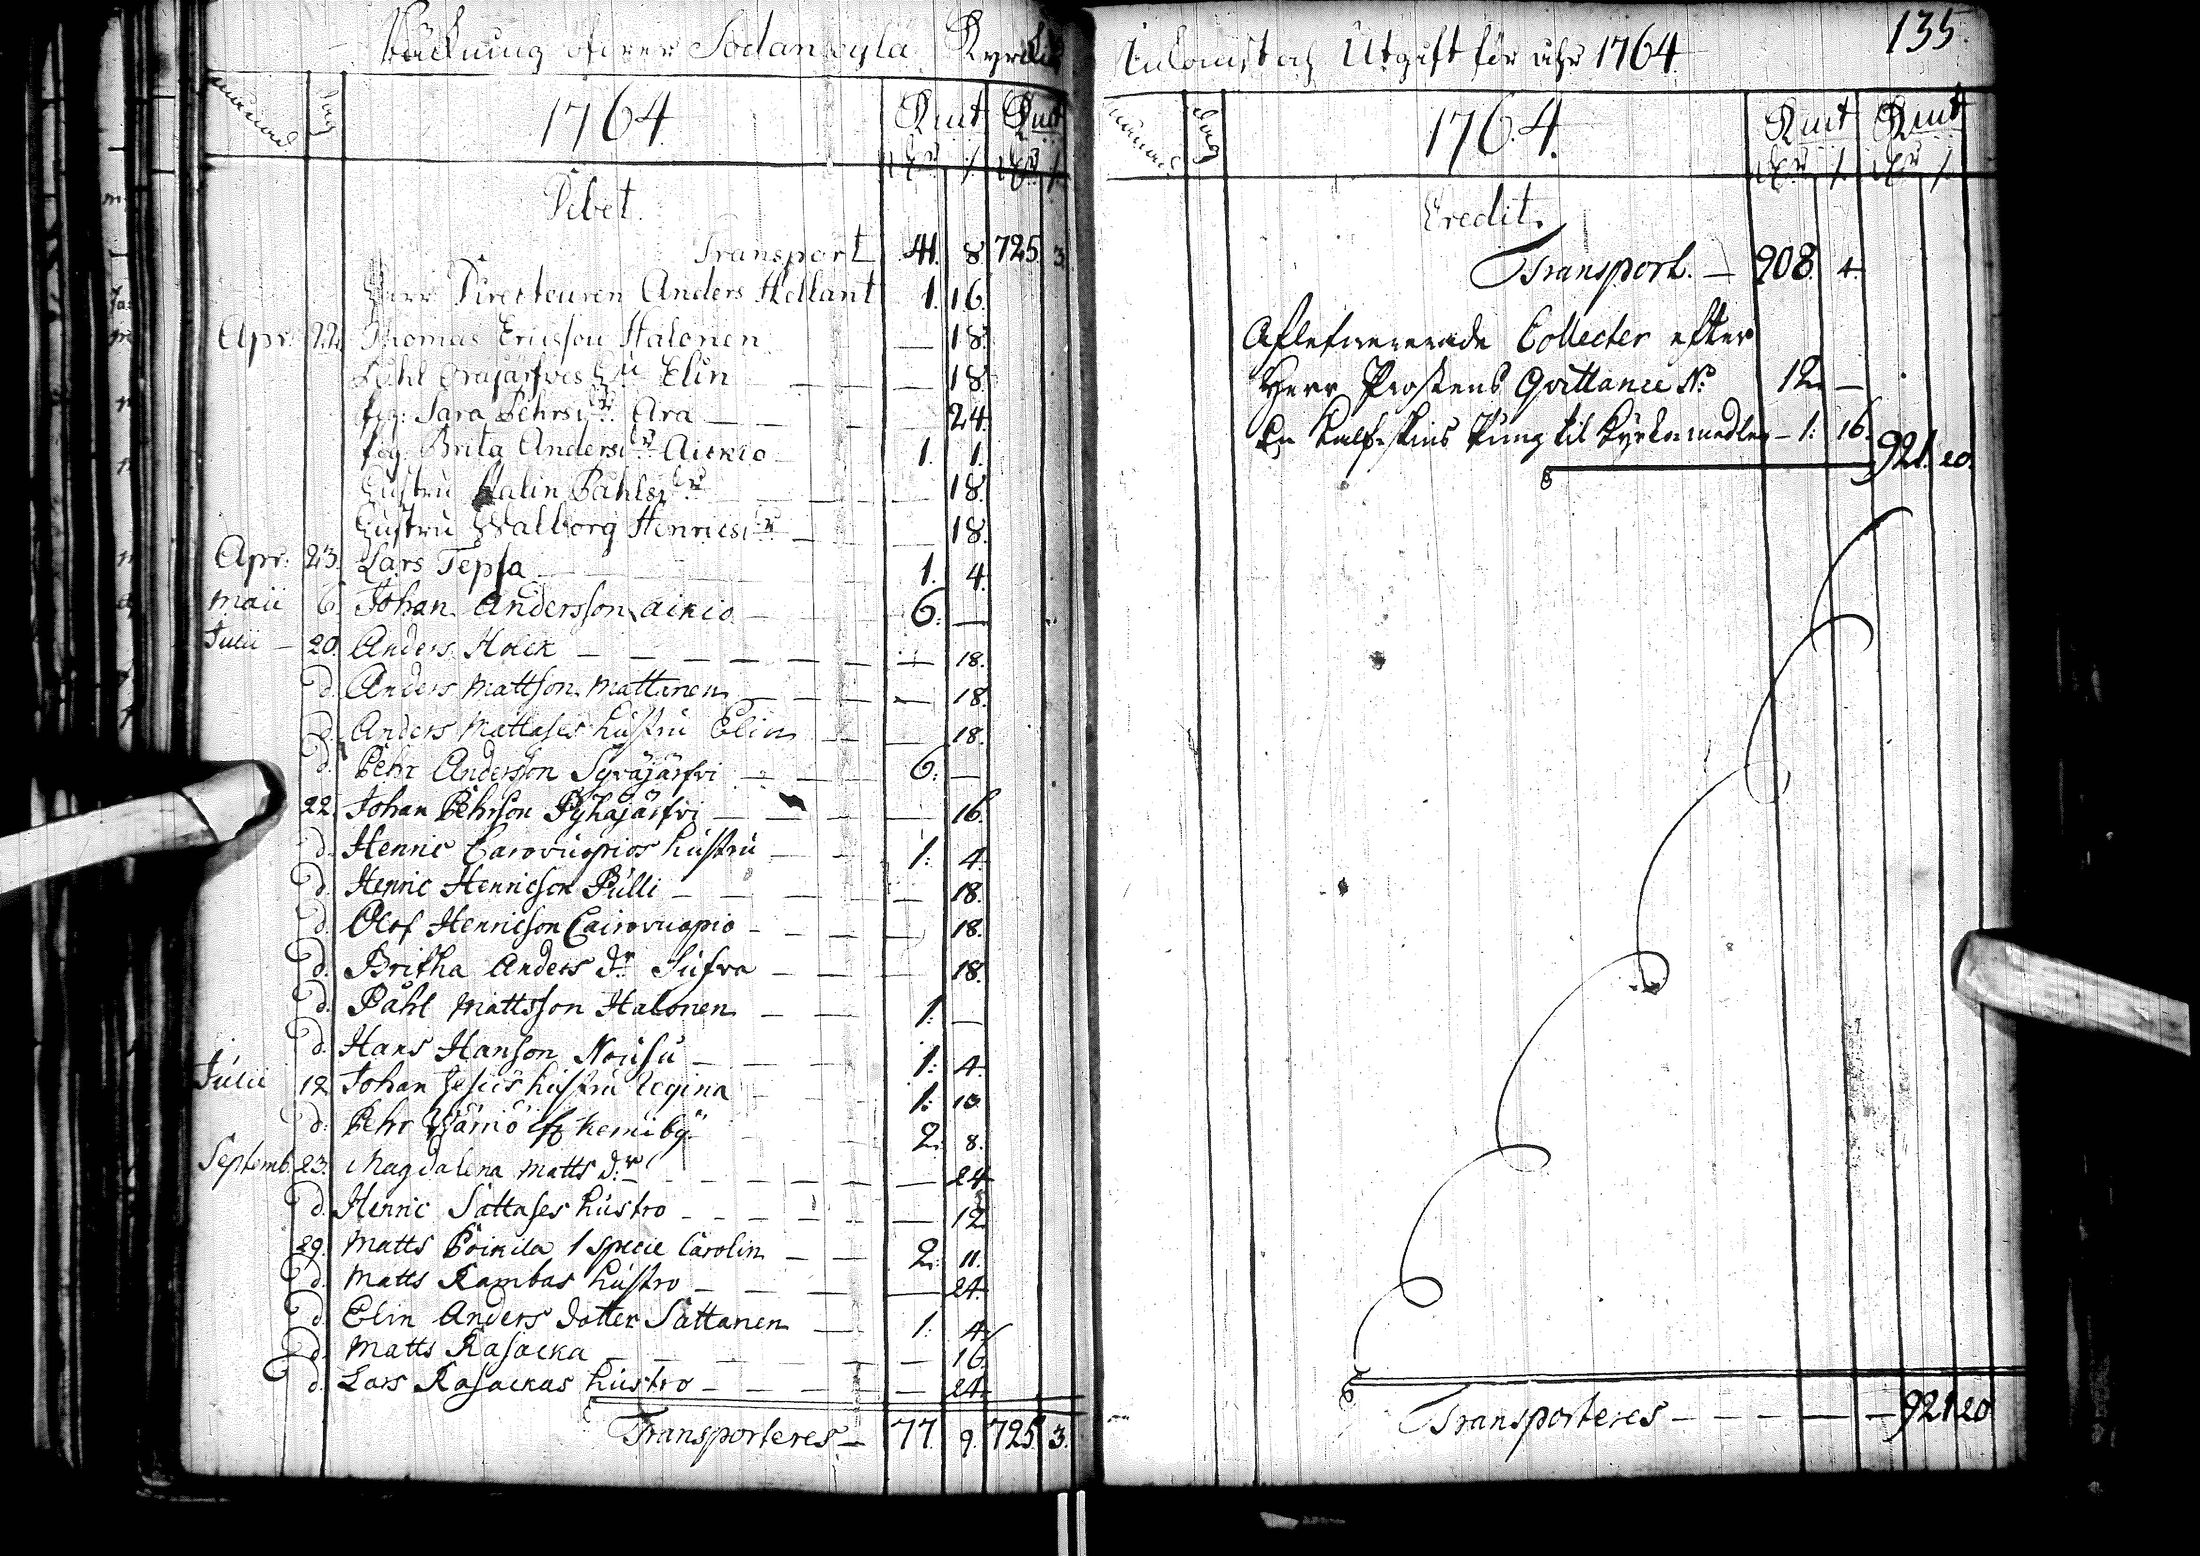 Räckning öfver Sodankyla Kyrckio
månad dag 1764 Kmt Kmt
Dr / Dr /
Debet.
Transport 41. 8. 725. 3.
Herr Directeuren Anders Hellant 1. 16.
Apr. 22. Thomas Ericsson Halonen — 18.
Påhl Orajärfvis Hu Elin — — 18.
pig. Sara Pehrs dr Ara — — — 24.
pig. Brita Anders dr Aikio — 1. 1.
Hustru Malin Påhls dr — — — 18.
Hustru Walborg Henrics dr — — 18.
Apr. 23. Lars Tepsa — 1. 4.
Maii 6. Johan Andersson Aikio — 6. —
Julii — 20. Anders Holck — — — — — — — 18.
d. Anders Mattson Mattanen — — — — 18.
d. Anders Mattases hustru Elin — — — 18.
d. Pehr Anderson Syväjärfvi — — — 6: —
22. Johan Pehrson Pyhäjärfvi — — — — 16.
d. Henric Cairovuopios hustru — — 1: 4.
d. Henric Henricson Pulli — — — — 18.
d. Olof Henricson Cairovuopio — — — — 18.
d. Britha Anders dr — — — 18.
d. Påhl Mattsson Halonen — — 1: —
d. Hans Hanson Nousu — — 1: 4.
Julii 12. Johan hustru Regina — 1: 10.
d: Pehr Wäinö Kemiby — 2: 8.
Septemb. 23. Magdalena Matts dr — — — — — — 24
d. Henric Sattases hustro — — — — — — 12
29. Matts Poikila 1 specie Carolin — — 2: 11.
d. Matts Kambas hustro — — — — — 24.
d. Elin Anders dotter Sattanen — 1: 4.
d. Matts Rasacka — — — — — — — 16.
d. Lars Rasackas hustro — — — — — 24.
Transporteres — 77. 9. 725. 3.
Inkomst och Utgift för åhr 1764.
135.
månad dag 1764. Kmt Kmt
Dr / Dr /
Credit.
Transport. — 908. 4.
Aflefwererade Collecter efter
Herr Prostens Qvittance No 12 —
En Kalfskins Pung til Kyrkomedlen — 1: 16. 921. 20.
Transporteres — — — — — 921 20